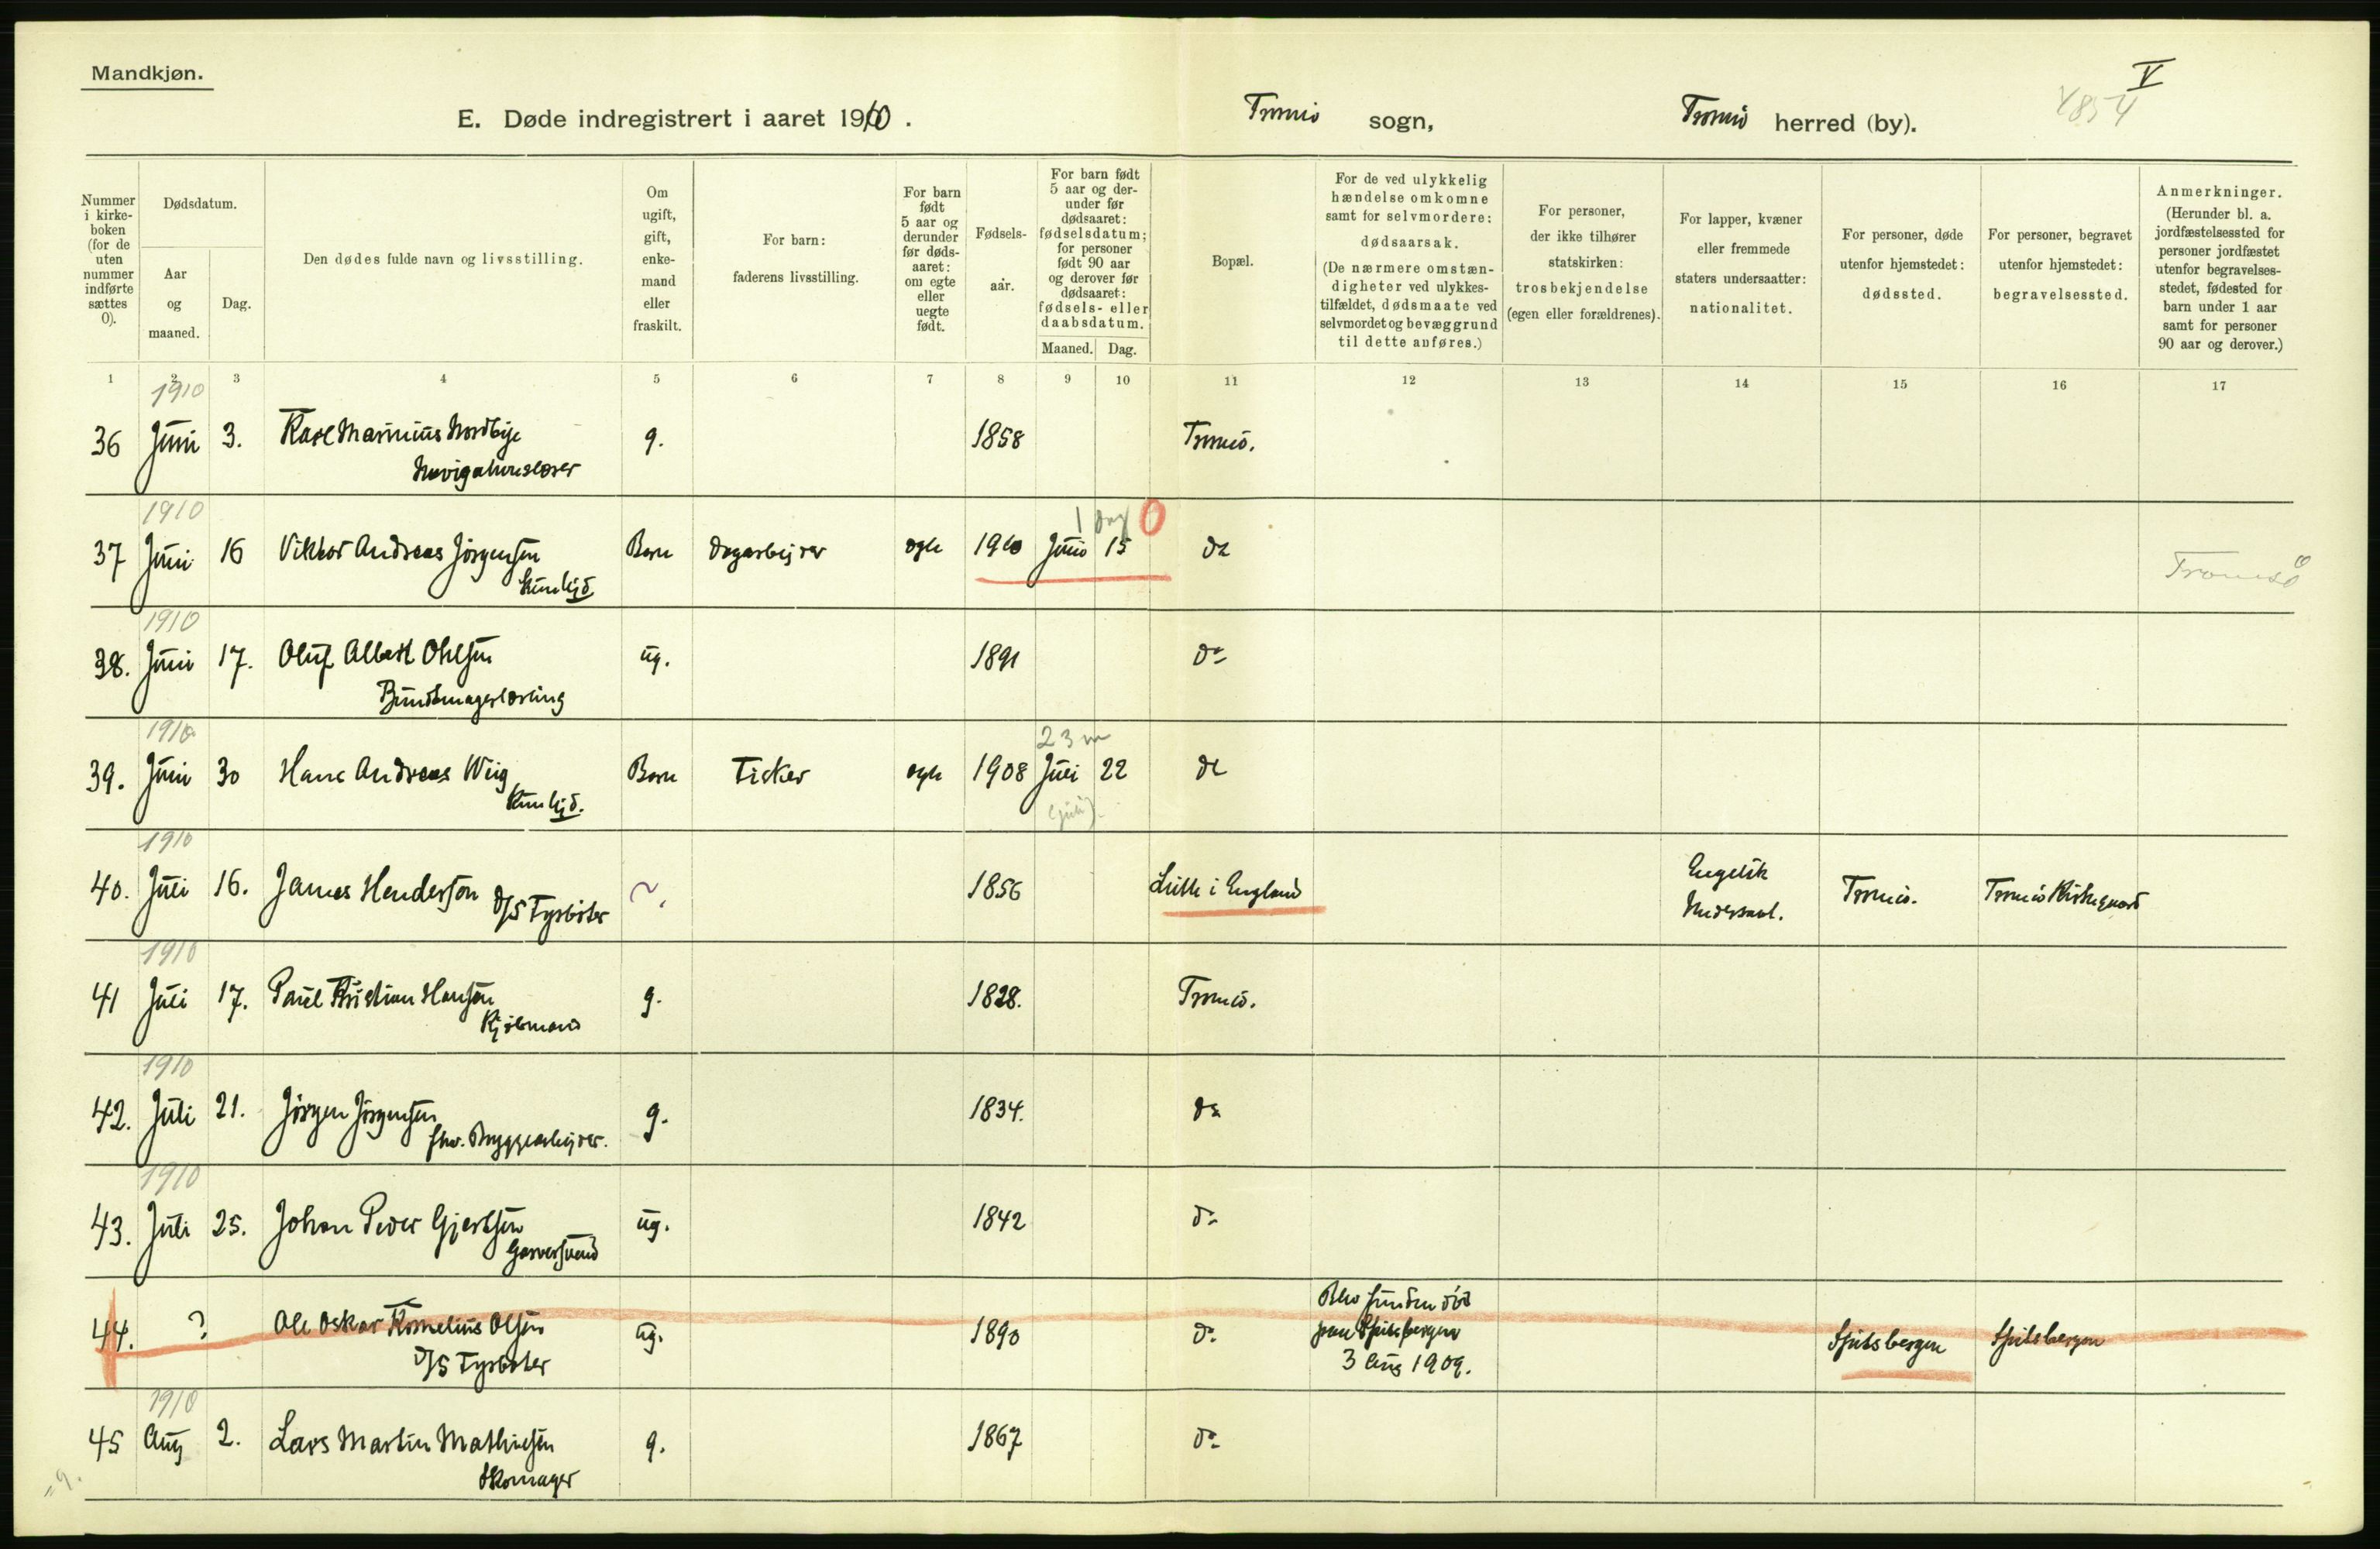 Mandkjøn.
V
4854
E. Døde indregistrert i aaret 1910.
Tromsö sogn,
Tromsö herred (by).
Nummer i kirke- boken (for de uten nummer indførte sættes 0).
Dødsdatum.
Aar og maaned.
Dag.
Den dødes fulde navn og livsstilling.
Om ugift, gift, enke- mand eller fraskilt.
For barn: faderens livsstilling.
For barn født 5 aar og derunder før døds- aaret: om egte eller uegte født.
Fødsels- aar.
For barn født 5 aar og der- under før dødsaaret: fødselsdatum; for personer født 90 aar og derover før dødsaaret: fødsels- eller daabsdatum.
Maaned. Dag.
Bopæl.
For de ved ulykkelig hændelse omkomne samt for selvmordere: dødsaarsak. (De nærmere omstæn- digheter ved ulykkes- tilfældet, dødsmaate ved selvmordet og bevæggrund til dette anføres.)
For personer, der ikke tilhører statskirken: trosbekjendelse (egen eller forældrenes).
For lapper, kvæner eller fremmede staters undersaatter: nationalitet.
For personer, døde utenfor hjemstedet: dødssted.
For personer, begravet utenfor hjemstedet: begravelsessted.
Anmerkninger. (Herunder bl. a. jordfæstelsessted for personer jordfæstet utenfor begravelses- stedet, fødested for barn under 1 aar samt for personer 90 aar og derover.)
1 2 3 4 5 6 7 8 9 10 11 12 13 14 15 16 17
1910
36 Juni 3. Karl Marinius Nordbye g. 1858 Tromsö.
Navigationslærer
1910 1 dag 0
37 Juni 16 Viktor Andreas Jörgensen Barn Dagarbejder egte 1910 Juni 15 do Tromsö
hjd.
1910
38. Juni 17. Oluf Albert Ohlsen ug. 1891 do
Bundtmagerlærling
1910 23 m
39. Juni 30 Hans Andreas Wiig Barn Fisker egte 1908 Juli 22 do
hjd. (juli)
1910
40. Juli 16. James Henderson ?. 1856 i England Engelsk Undersaat. Tromsö. Tromsö Kirkegaard
D/S Fyrböter
1910
41 Juli 17. Paul Kristian Hansen g. 1828. Tromsö.
Kjöbmand
1910
42. Juli 21. Jörgen Jörgensen g. 1834. do
fhv. Bryggearbejder.
1910
43. Juli 25. Johan Peder Gjertsen ug. 1842 do
Garversvend
44. ? Ole Oskar Kornelius Olsen ug. 1890 do Blev funden död paa Spitsbergen 3 Aug 1909. Spitsbergen Spitsbergen
D/S Fyrböter
1910
45 Aug 2. Lars Martin Mathiesen g. 1867 do
Skomager